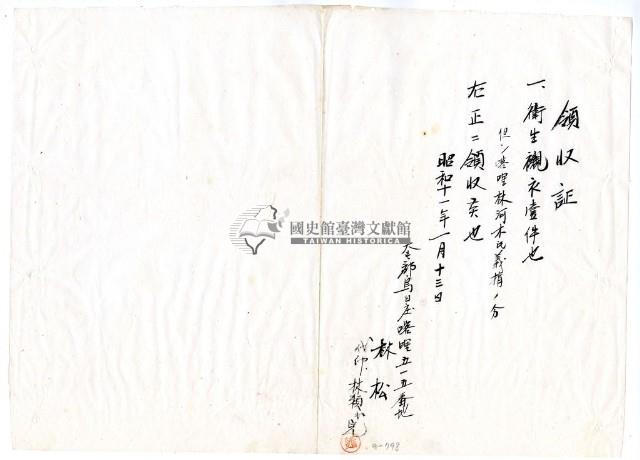 領収証
一、衛生襯衣壹件也
但シ喀哩林河木氏義捐ノ分
右正ニ領収候也
昭和十一年一月十三日
大屯郡烏日庄喀哩五一五番地
林松
代印 林
國史館臺灣文獻館
TAIWAN HISTORICA
9-798